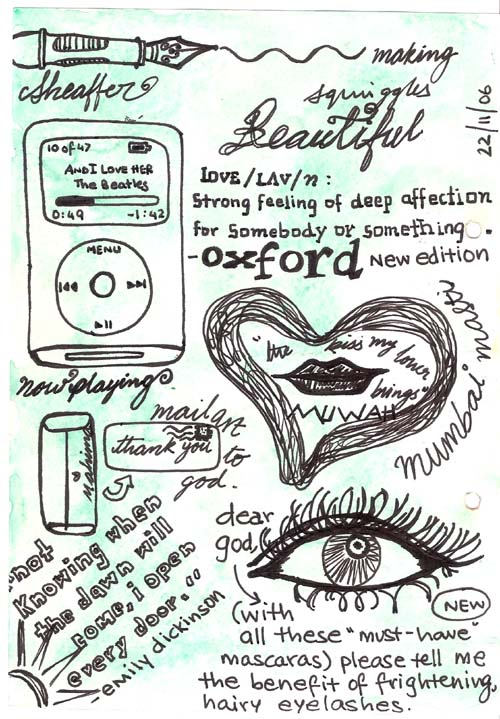 making
Sheaffer
squiggles
Beautiful
22/11/06
10 of 47
AND I LOVE HER
The Beatles
0:49 -1:42
MENU
now playing
LOVE/LAV/n:
Strong feeling of deep affection
for somebody or something.
-oxford New edition
"the kiss my lover
brings"
MUWAH
mumbai
mail art
thank you
to
god.
"not
Knowing when
the dawn will
come, i open
every door."
-emily dickinson
dear
god,
NEW
(with
all these "must-have"
mascaras) please tell me
the benefit of frightening,
hairy eyelashes.